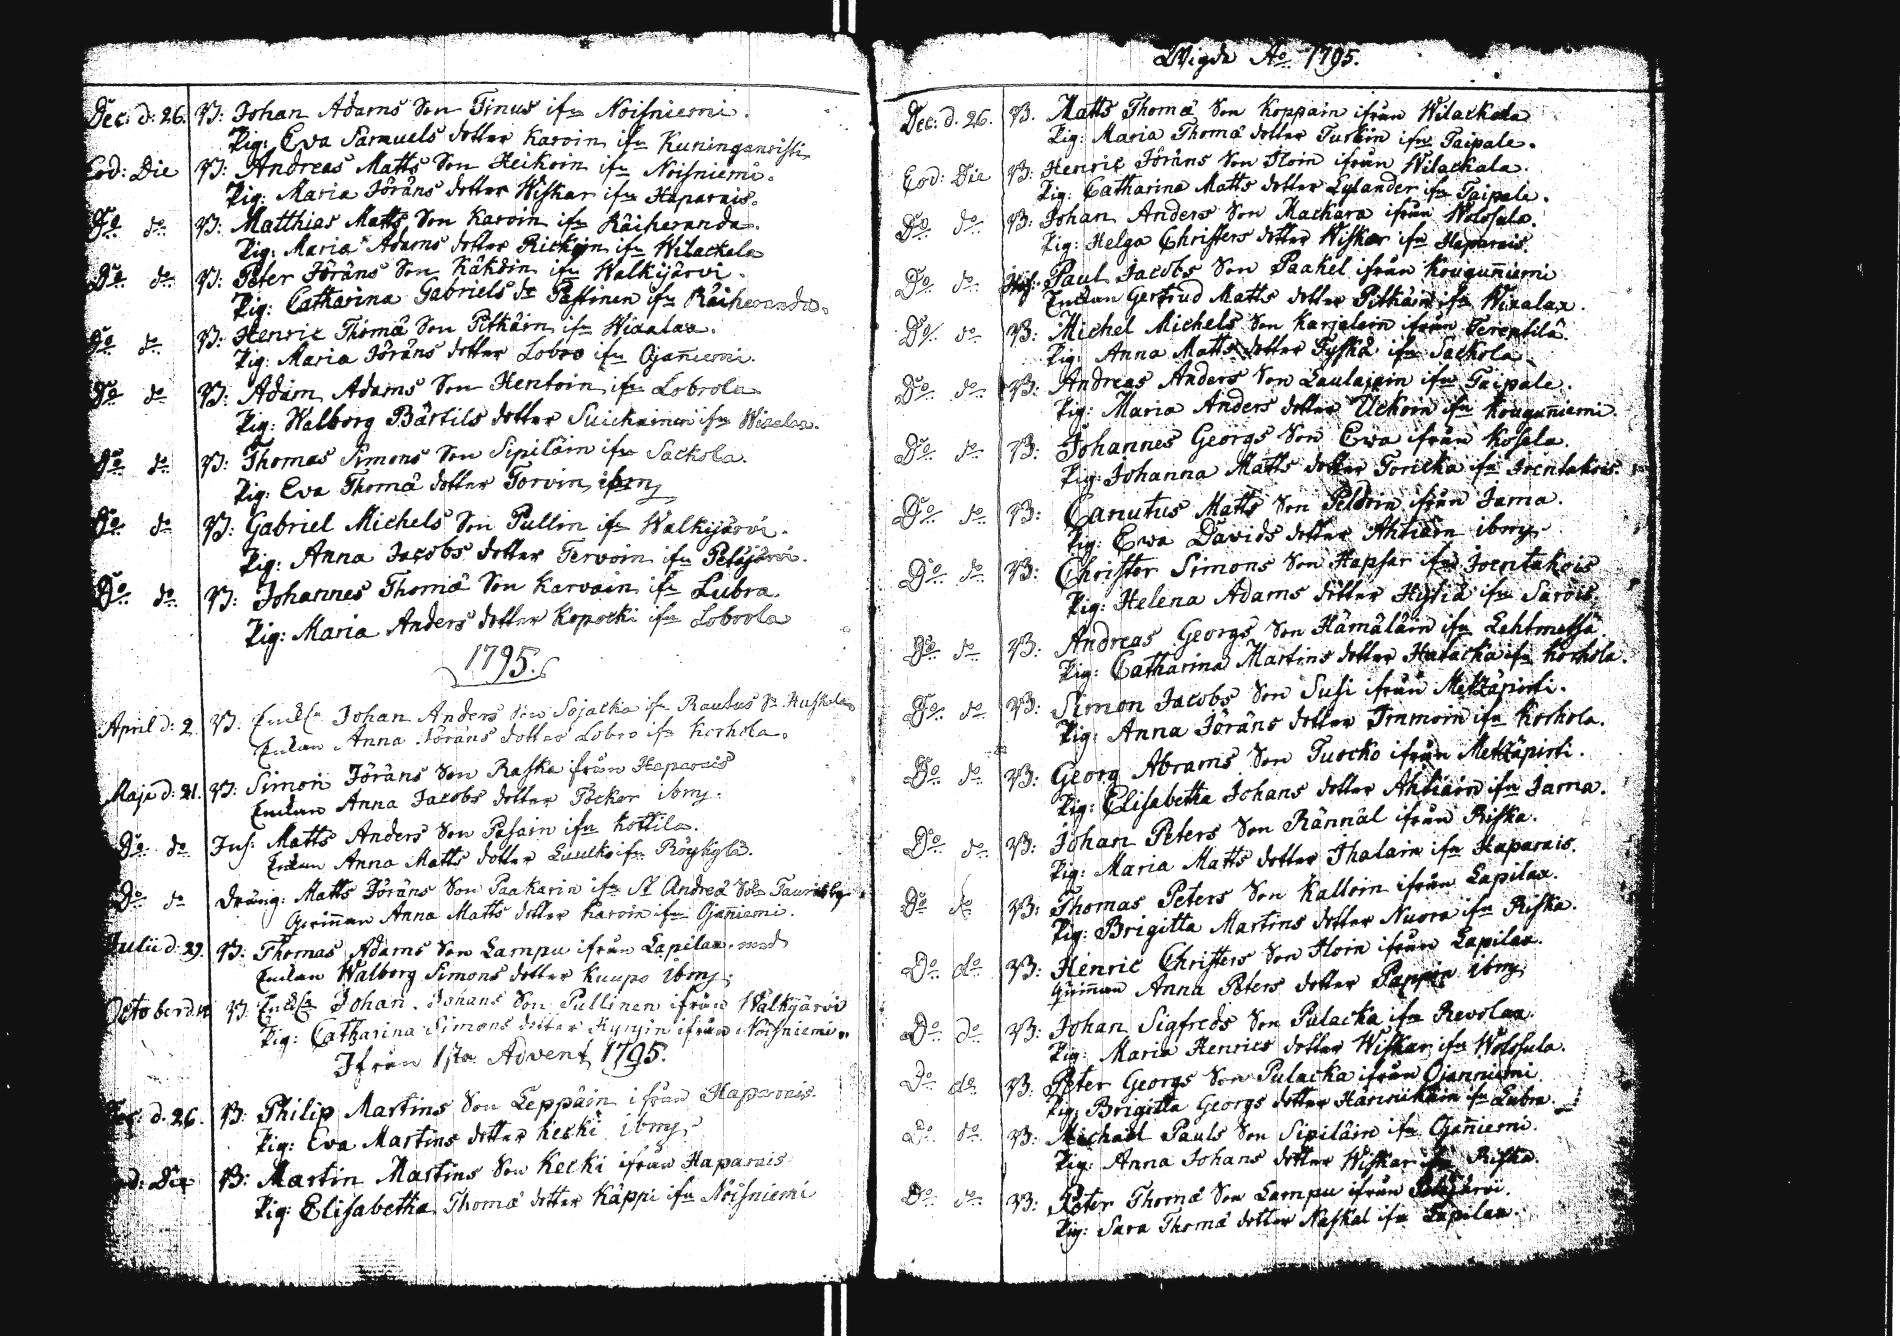 Dec: d. 26. B: Johan Adams Son Tinus ifn Noisniemi.
Pig: Eva Samuels dotter Karoin ifn Kuninganristi
Eod: Die B: Andreas Matts Son Heikoin ifn Noisniemi.
Pig: Maria Jöräns dotter Wiskar ifn Haparais.
Do do B: Matthias Matts Son Karoin ifn Räiheranda.
Pig: Maria Adams dotter Rickoin ifn Wilackala
Do do B: Peter Jöräns Son Käköin ifn Walkijärvi.
Pig: Catharina Gabriels dr Passinen ifn Räiheranda.
Do do B: Henric Thomæ Son Pitkäin ifn Wixalax.
Pig: Maria Jöräns dotter Lobro ifn Ojaniemi.
Do do B: Adam Adams Son Hentoin ifn Lobrola
Pig: Walborg Bärtils dotter Suickainen ifn Wixalax.
Do do B: Thomas Simons Son Sipiläin ifn Sackola.
Pig: Eva Thomæ dotter Torvin ibm
Do do B: Gabriel Michels Son Pullin ifn Walkijärvi.
Pig: Anna Jacobs dotter Tervoin ifn Petäjärvi.
Do do B: Johannes Thomæ Son Karvain ifn Lubra.
Pig: Maria Anders dotter Kopocki ifn Lobrola
1795.
April d: 2. B. Enkln Johan Anders Son Sojacka ifn Rautus Sn Huskala
Enkan Anna Jöräns dotter Lobro ifn Korhola.
Maji d: 21. B: Simon Jöräns Son Raska ifrån Haparais
Enkan Anna Jacobs dotter Pocker ibm.
Do do Inh: Matts Anders Son Pasain ifn Kottila.
Enkan Anna Matts dotter Luulko ifn Röykylä.
Do do Dräng: Matts Jöräns Son Paakarin ifn St Andreæ Sn Tauris by
Qvinnan Anna Matts dotter Karoin ifn Ojaniemi.
Julii d: 29. B: Thomas Adams Son Lampu ifrån Lapilax. med
Enkan Walborg Simons dotter Kuupo ibm.
October d. B. Enkln Johan Johans Son Pullinen ifrån Walkijärvi
Pig: Catharina Simons dotter Kynyin ifrån Noisniemi.
Ifrån 1sta Advent 1795.
Dec: d. 26. B: Philip Martins Son Leppäin ifrån Haparais.
Pig: Eva Martins dotter Kecki ibm
Eod: Die B: Martin Martins Son Kecki ifrån Haparais
Pig: Elisabetha Thomæ dotter Käppi ifn Noisniemi
Wigde Ao 1795.
Dec: d. 26. B. Matts Thomæ Son Koppain ifrån Wilackala
Pig: Maria Thomæ dotter Turkin ifn Taipale.
Eod: Die B: Henric Jöräns Son Iloin ifrån Wilackala.
Pig: Catharina Matts dotter Lylander ifn Taipale.
Do do B: Johan Anders Son Mackara ifrån Wolosula.
Pig: Helga Christers dotter Wiskar ifn Haparais.
Do do Inh: Paul Jacobs Son Paakel ifrån Kouguniemi
Enkan Gertrud Matts dotter Pitkäin ifn Wixalax.
Do do B: Michel Michels Son Karjalain ifrån Terentilä.
Pig: Anna Matts dotter Tyskä ifn Sackola
Do do B: Andreas Anders Son Laulajain ifn Taipale.
Pig: Maria Anders dotter Uckoin ifn Kouguniemi.
Do do B: Johannes Georgs Son Ewa ifrån Kosela.
Pig: Johanna Matts dotter Toricka ifn Joentakois.
Do do B: Canutus Matts Son Peldoin ifrån Jama.
Pig: Ewa Davids dotter Ahtiäin ibm.
Do do B: Christer Simons Son Hapsar ifn Joentakois
Pig: Helena Adams dotter Hytiä ifn Sarois
Do do B: Andreas Georgs Son Hämäläin ifn Lehtmetsä
Pig: Catharina Martins dotter Hatacka ifn Korhola.
Do do B: Simon Jacobs Son Susi ifrån Metzäpirti.
Pig: Anna Jöräns dotter Immoin ifn Korhola.
Do do B: Georg Abrams Son Tuocko ifrån Metzäpirti.
Pig: Elisabetha Johans dotter Ahtiäin ifn Jama.
Do do B: Johan Peters Son Rännäl ifrån Riska.
Pig: Maria Matts dotter Ihalain ifn Haparais.
Do do B: Thomas Peters Son Kalloin ifrån Lapilax.
Pig: Brigitta Martins dotter Nuora ifn Riska.
Do do B: Henric Christers Son Iloin ifrån Lapilax.
Qvinnan Anna Peters dotter Pappin ibm
Do do B: Johan Sigfreds Son Pulacka ifn Revolax.
Pig: Maria Henrics dotter Wiskar ifn Wolosula.
Do do B. Peter Georgs Son Pulacka ifrån Ojanniemi
Pig: Brigitta Georgs dotter Hannickain ifn Lubra.
Do do B: Michael Pauls Son Sipiläin ifn Ojaniemi.
Pig: Anna Johans dotter Wiskar ifn Riska.
Do do B: Peter Thomæ Son Lampu ifrån Petäjärvi.
Pig: Sara Thomæ dotter Naskal ifn Lapilax.